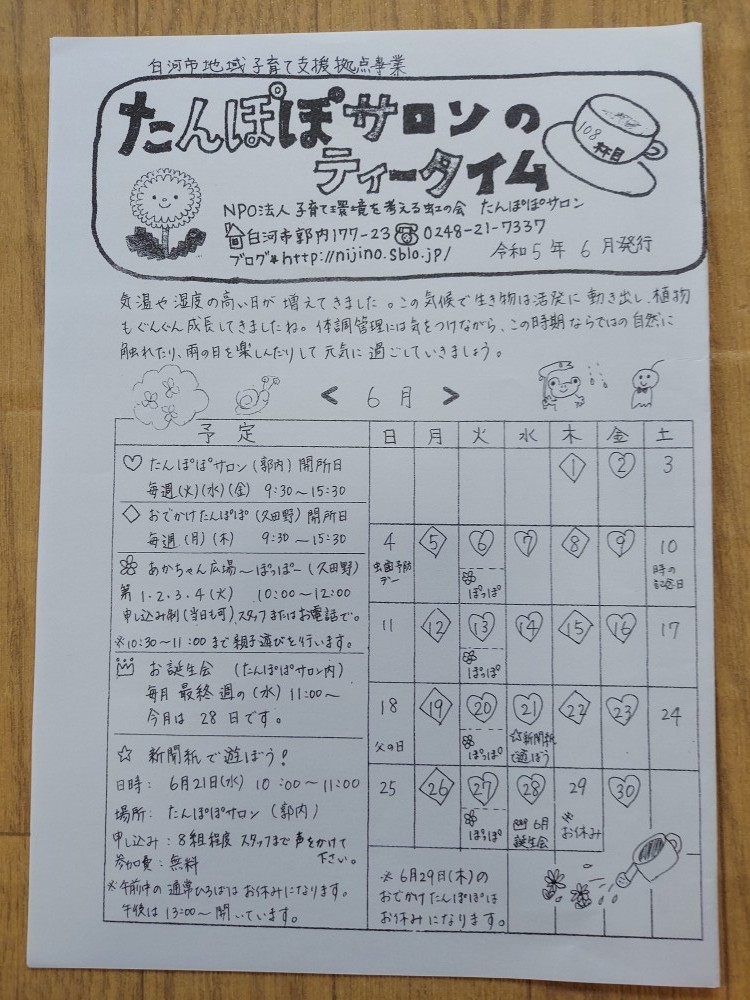 白河市地域子育て支援拠点事業
たんぽぽサロンの
ティータイム
108
杯目
NPO法人 子育て環境を考える虹の会 たんぽぽサロン
白河市郭内177-23 ☎0248-21-7337
ブログ http://nijino.sblo.jp/
令和5年 6月発行
気温や湿度の高い日が増えてきました。この気候で生き物は活発に動き出し、植物
もぐんぐん成長してきましたね。体調管理には気をつけながら、この時期ならではの自然に
触れたり、雨の日を楽しんだりして元気に過ごしていきましょう。
< 6月 >
予定
♡たんぽぽサロン(郭内)開所日
毎週(火)(水)(金) 9:30~15:30
◇おでかけたんぽぽ(久田野)開所日
毎週(月)(木) 9:30~15:30
あかちゃん広場~ぽっぽ~(久田野)
第1・2・3・4(火) 10:00~12:00
申し込み制(当日も可)スタッフまたはお電話で。
※10:30~11:00まで親子遊びを行います。
お誕生会 (たんぽぽサロン内)
毎月 最終週の(水) 11:00~
今月は 28日です。
☆ 新聞紙で遊ぼう!
日時: 6月21日(水) 10:00~11:00
場所: たんぽぽサロン(郭内)
申し込み: 8組程度 スタッフまで声をかけて
下さい。
参加費: 無料
※午前中の通常ひろばはお休みになります。
午後は13:00~開いています。
日 月 火 水 木 金 土
1 2 3
4 5 6 7 8 9 10
虫歯予防
デー
ぽっぽ
時の
記念日
11 12 13 14 15 16 17
ぽっぽ
18 19 20 21 22 23 24
父の日
ぽっぽ
☆新聞紙
で遊ぼう
25 26 27 28 29 30
ぽっぽ
6月
誕生会
※
お休み
※6月29日(木)の
おでかけたんぽぽは
お休みになります。